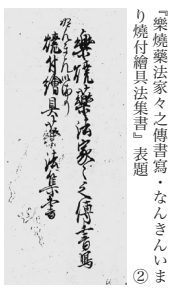 『樂燒藥法家々之傳書寫・なんきんいま
り燒付繪具法集書』表題 ②
樂燒藥法家々之傳書寫
なんきんいまり
燒付繪具藥法集書